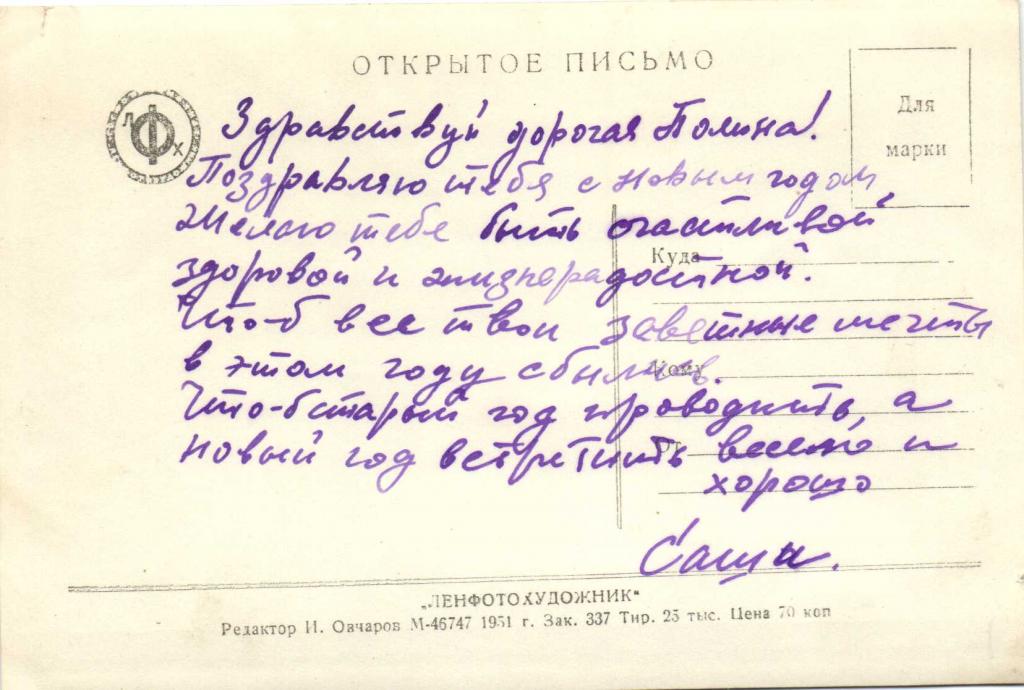 ОТКРЫТОЕ ПИСЬМО
Л Ф Х
Для
марки
Здравствуй дорогая Полина!
Поздравляю тебя с новым годом,
Желаю тебе быть счастливой
здоровой и жизнерадостной.
Что-б все твои заветные мечты
в этом году сбылись.
Что-б старый год проводить, а
новый год встретить весело и
хорошо
Саша.
Куда
Кому
От
„ЛЕНФОТОХУДОЖНИК“
Редактор И. Овчаров М-46747 1951 г. Зак. 337 Тир. 25 тыс. Цена 70 коп